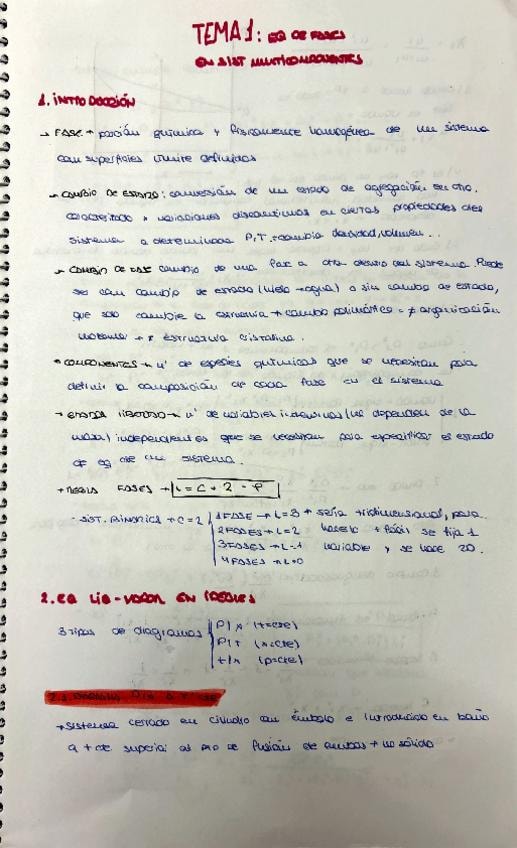 TEMA 1: EQ DE FASES
EN SIST MULTICOMPONENTES
1. INTRODUCCIÓN
→ FASE → porción química y físicamente homogénea de un sistema
con superficies límite definidas
→ CAMBIO DE ESTADO: conversión de un estado de agregación en otro.
caracterizado x variaciones discontinuas en ciertas propiedades del
sistema a determinada P,T. → cambia densidad, volumen...
→ CAMBIO DE FASE cambio de una fase a otra dentro del sistema. Puede
ser con cambio de estado (hielo → agua) o sin cambio de estado,
que solo cambie la estructura → cambio polimórfico = ≠ organización
→ ≠ estructura cristalina.
→ COMPONENTES → nº de especies químicas que se necesitan para
definir la composición de cada fase en el sistema
→ GRADOS LIBERTAD → nº de variables intensivas (no dependen de la
masa) independientes que se necesitan para especificar el estado
de eq de un sistema.
→ REGLA FASES → L = C + 2 - F
SIST. BINARIOS → C = 2 1 FASE → L = 3 → sería tridimensional, para
2 FASES → L = 2 hacerlo + fácil se fija 1
3 FASES → L = 1 variable y se hace 2D.
4 FASES → L = 0
2. EQ LIQ-VAPOR EN IDEALES
3 tipos de diagramas P/x (t=cte)
P/t (x=cte)
t/x (p=cte)
→ sistema cerrado en cilindro con émbolo e introducido en baño
a t cte superior al pto de fusión de ambos → no sólido